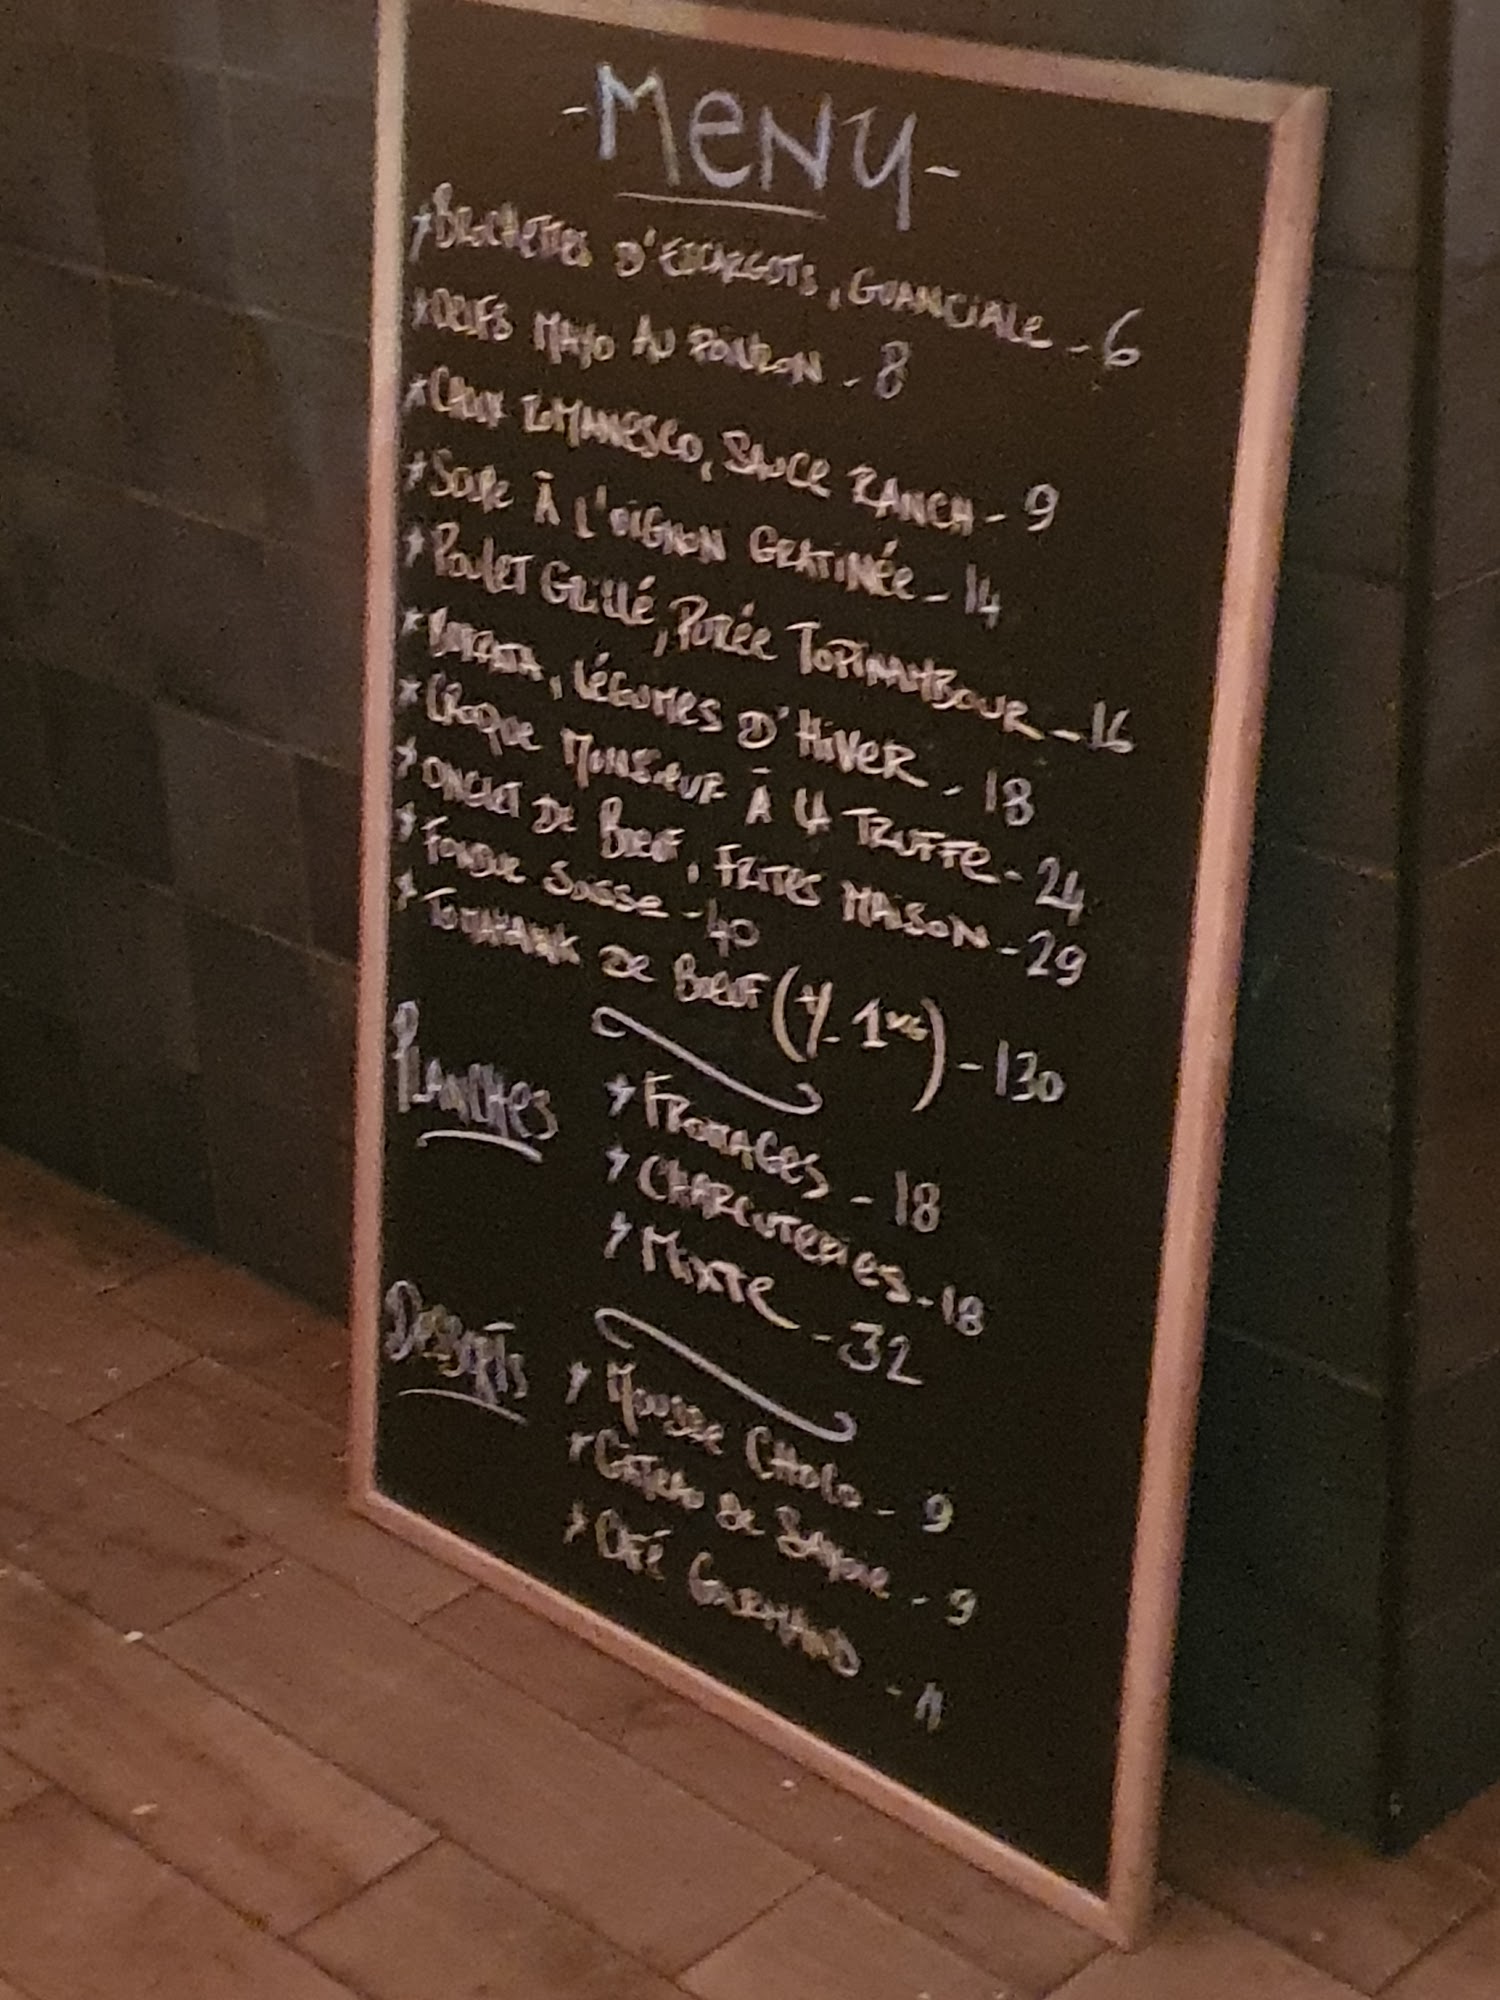 -MENU-
*BROCHETTES D'ESCARGOTS, GUANCIALE - 6
*OEUFS MAYO AU POIVRON - 8
*CHOU ROMANESCO, SAUCE RANCH - 9
*SOUPE À L'OIGNON GRATINÉE - 14
*POULET GRILLÉ, PURÉE TOPINAMBOUR - 16
*BURRATA, LÉGUMES D'HIVER - 18
*CROQUE MONSIEUR À LA TRUFFE - 24
*ONGLET DE BOEUF, FRITES MAISON - 29
*FONDUE SUISSE - 40
*TOMAHAWK DE BOEUF (+/- 1KG) - 130
PLANCHES
*FROMAGES - 18
*CHARCUTERIES - 18
*MIXTE - 32
DESSERTS
*MOUSSE CHOCO - 9
*GÂTEAU DE SAVOIE - 9
*CAFÉ GOURMAND - 11